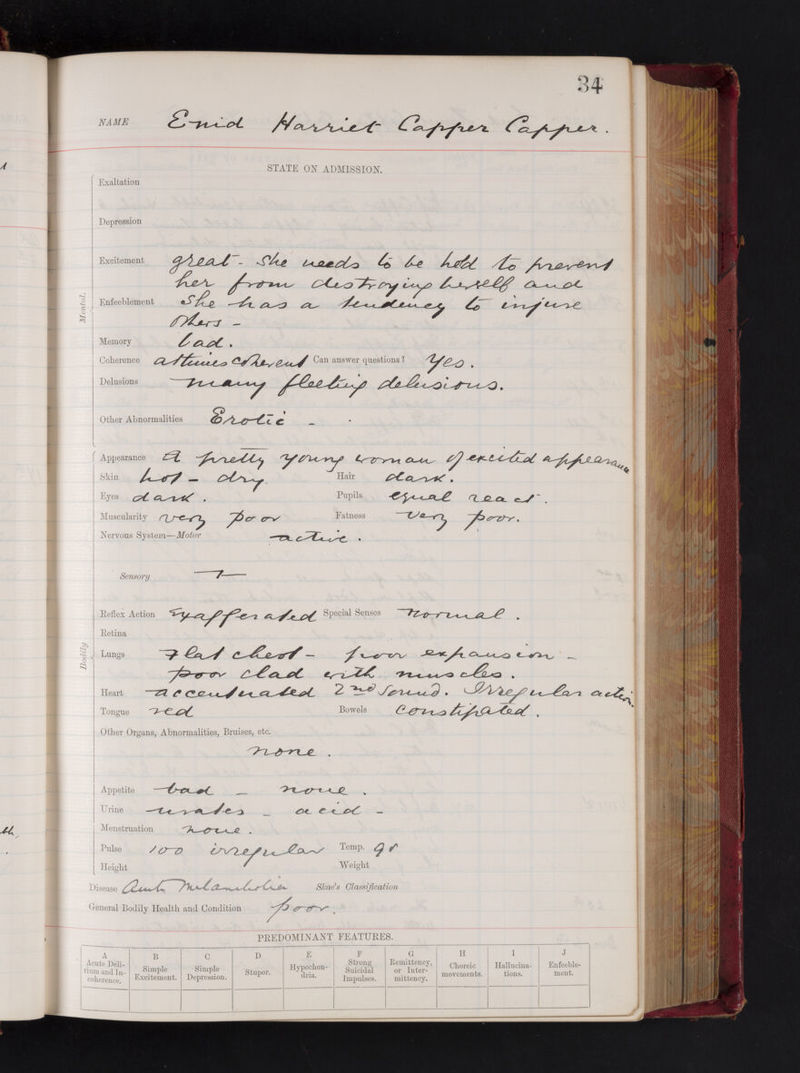 34
NAME Enid Harriet Capper Capper.
STATE ON ADMISSION.
Mental.
Exaltation
Depression
Excitement great - She needs to be held to prevent
her from destroying herself and
Enfeeblement She has a tendency to injure
others -
Memory bad.
Coherence at times coherent Can answer questions? Yes.
Delusions many fleeting delusions.
Other Abnormalities Erotic -
Bodily
Appearance A pretty young woman of excited appearance
Skin hot - dry Hair dark.
Eyes dark. Pupils equal react.
Muscularity very poor Fatness very poor.
Nervous System—Motor active.
Sensory
Reflex Action exaggerated Special Senses normal.
Retina
Lungs Flat chest - poor expansion -
poor clad with muscles.
Heart accentuated 2nd sound. Irregular action.
Tongue red Bowels constipated.
Other Organs, Abnormalities, Bruises, etc.
none.
Appetite bad - none.
Urine urates - acid -
Menstruation none.
Pulse 100 irregular Temp.
Height Weight
Disease Acute Melancholia Skae's Classification
General Bodily Health and Condition poor.
PREDOMINANT FEATURES.
A B C D E F G H I J
Acute Delirium and Incoherence. Simple Excitement. Simple Depression. Stupor. Hypochondria. Strong Suicidal Impulses. Remittency, or Intermittency. Choreic movements. Hallucinations. Enfeeblement.